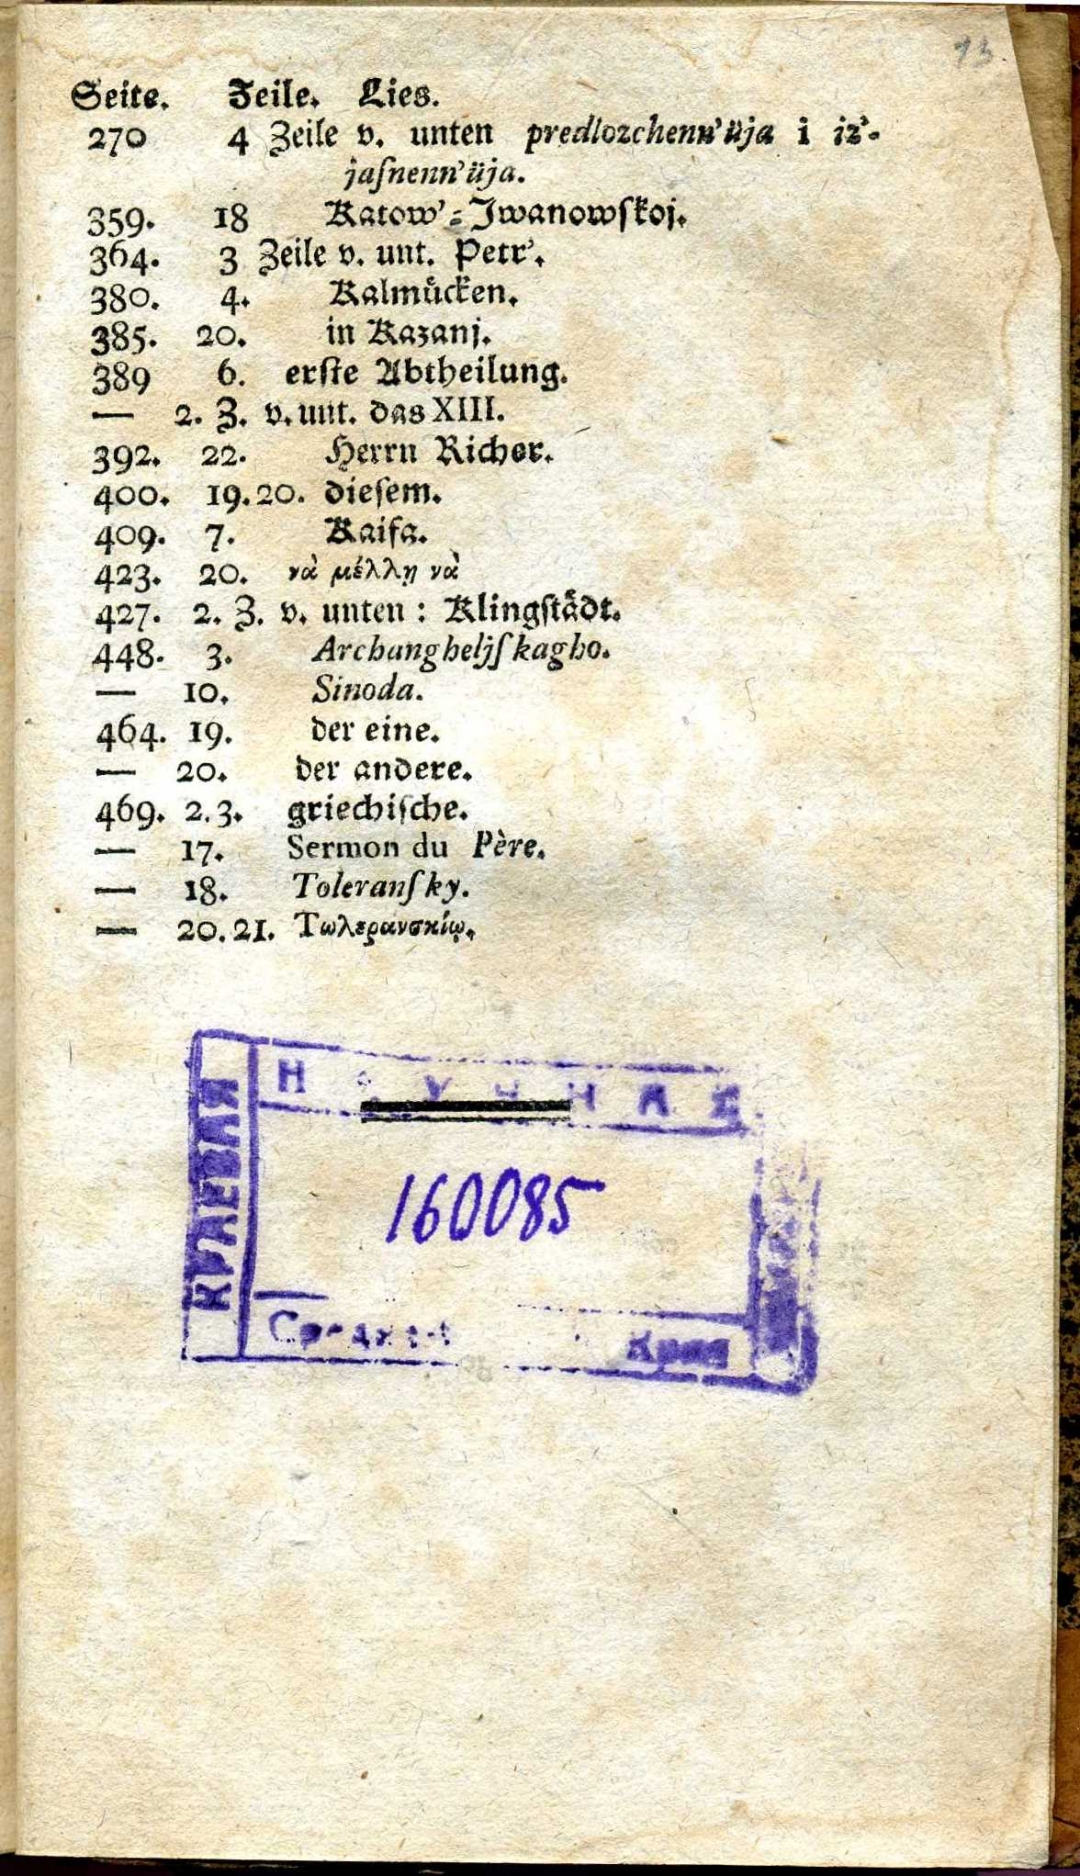 13.
Seite. Zeile. Lies.
270 4 Zeile v. unten predlozchenn'üja i iz'-
jaſnenn'üja.
359. 18 Katow'=Iwanowſkoj.
364. 3 Zeile v. unt. Petr'.
380. 4. Kalmücken.
385. 20. in Kazanj.
389 6. erſte Abtheilung.
— 2. Z. v. unt. das XIII.
392. 22. Herrn Richer.
400. 19. 20. dieſem.
409. 7. Kaifa.
423. 20. νὰ μέλλῃ νὰ
427. 2. Z. v. unten: Klingſtädt.
448. 3. Archangheljſkagho.
— 10. Sinoda.
464. 19. der eine.
— 20. der andere.
469. 2. 3. griechiſche.
— 17. Sermon du Père.
— 18. Toleranſky.
— 20. 21. Τωλερανσκίῳ.
НАУЧНАЯ
КРАЕВАЯ
160085
Края